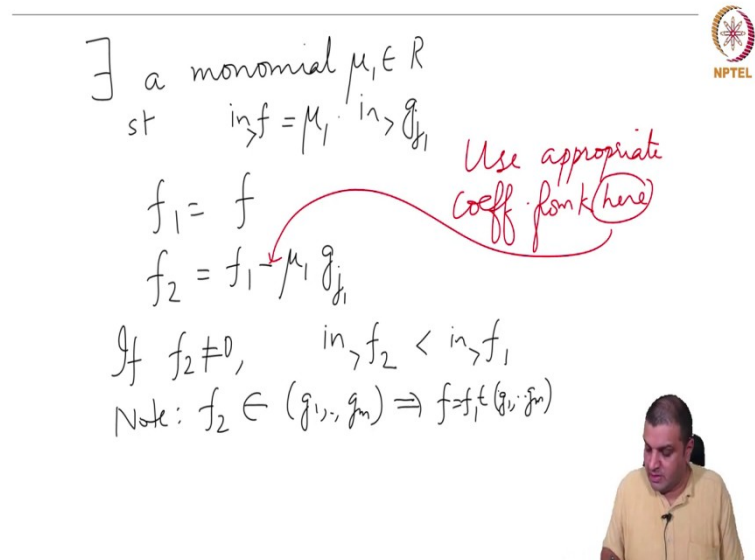 ∃ a monomial μ₁ ∈ R
st in_> f = μ₁ · in_> g_{j₁}
Use appropriate
coeff. from k (here)
f₁ = f
f₂ = f₁ − μ₁ g_{j₁}
If f₂ ≠ 0, in_> f₂ < in_> f₁
Note: f₂ ∈ (g₁, .., gₘ) ⇒ f = f₁ ∈ (g₁, .. gₘ)
NPTEL